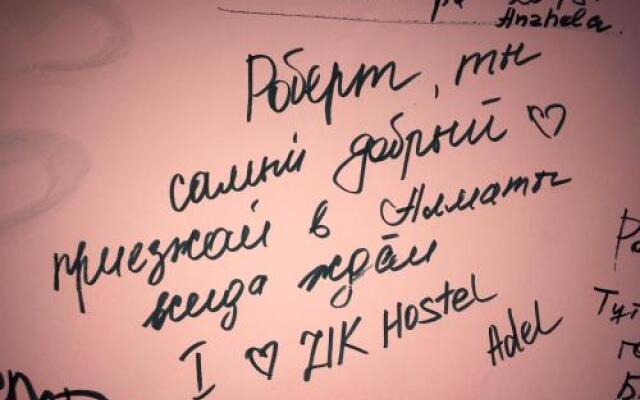 Anzhela.
Роберт, ты
самый добрый ♡
приезжай в Алматы
всегда ждём
I ♡ ZIK Hostel
Adel